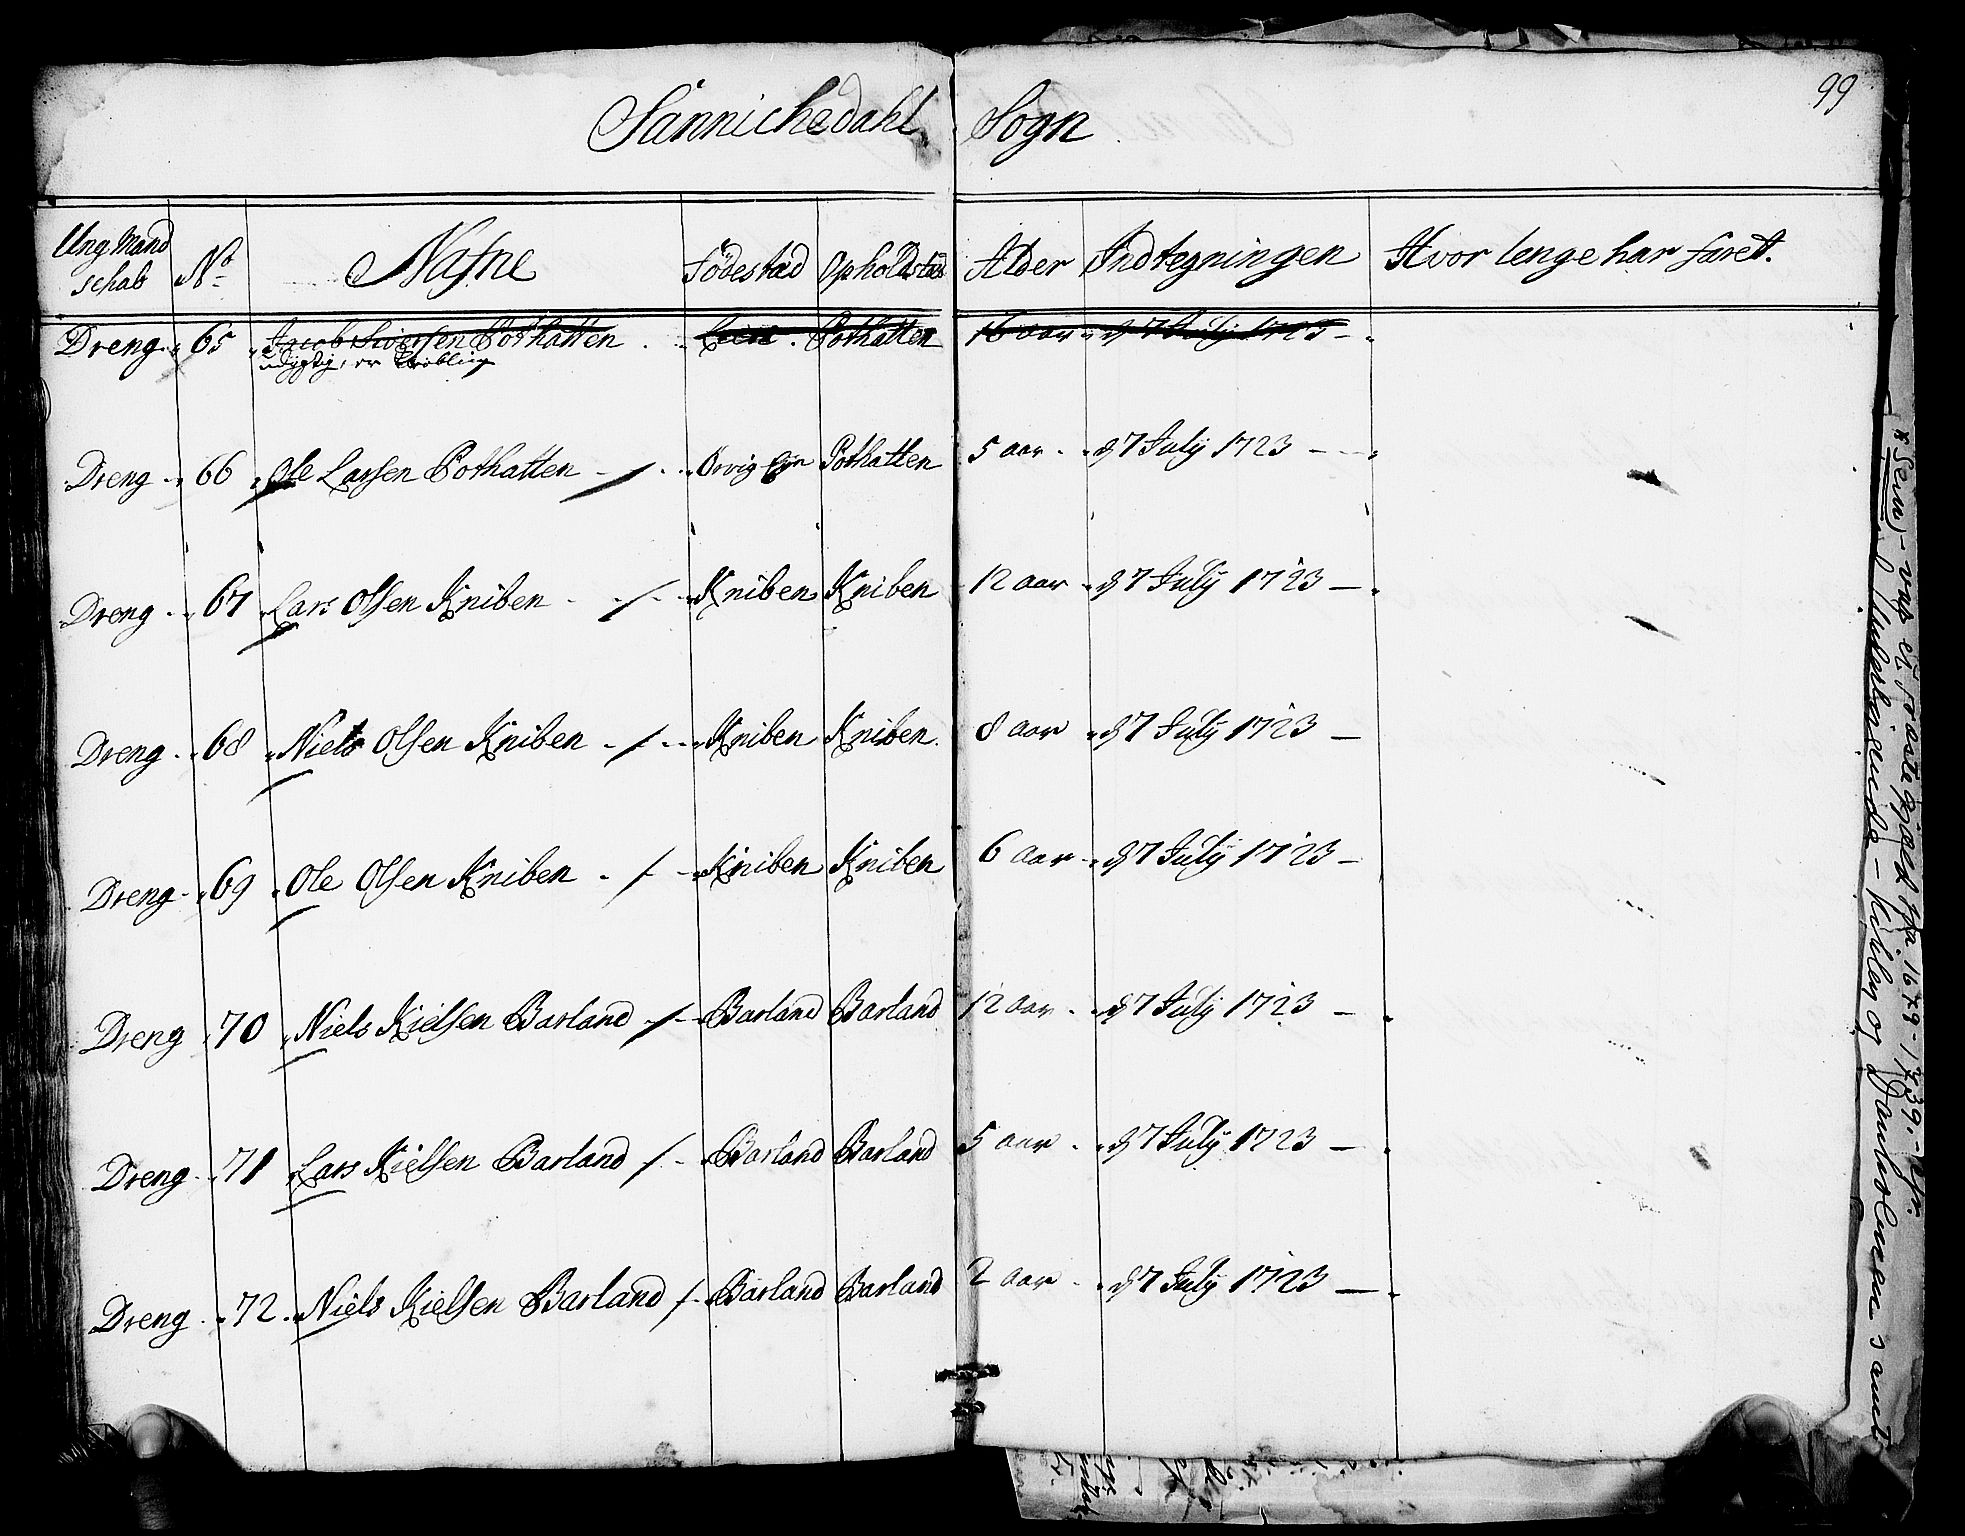 99
Sannichedahl Sogn
Ung Mand schab No Nafne Födestæd Opholdstæd Alder Indtegningen Hvor lenge har faret.
Dreng 65 Jacob Siversen Pothatten Pothatten 16 aar d 7 July 1723
udygtig, er Krøbling
Dreng 66 Ole Larsen Pothatten Pothatten 5 aar d 7 July 1723
Dreng 67 Lars Olsen Kniben Kniben Kniben 12 aar d 7 July 1723
Dreng 68 Niels Olsen Kniben Kniben Kniben 8 aar d 7 July 1723
Dreng 69 Ole Olsen Kniben Kniben Kniben 6 aar d 7 July 1723
Dreng 70 Niels Kielsen Barland Barland Barland 12 aar d 7 July 1723
Dreng 71 Lars Kielsen Barland Barland Barland 5 aar d 7 July 1723
Dreng 72 Niels Kielsen Barland Barland Barland 2 aar d 7 July 1723